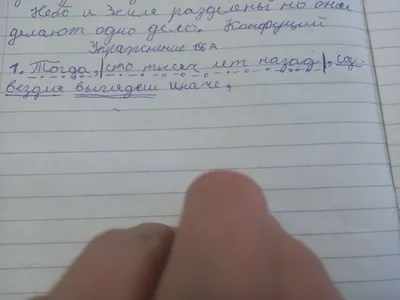 Небо и Земля разделены но они
делают одно дело. Конфуций
Упражнение 156А
1. Тогда, |сто тысяч лет назад|, соз-
вездия выглядели иначе,